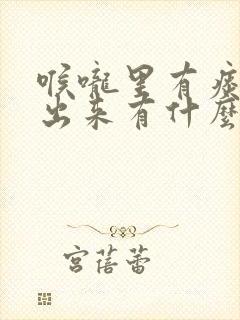 喉嚨里有痰
出来有什麼
宮蓓蕾